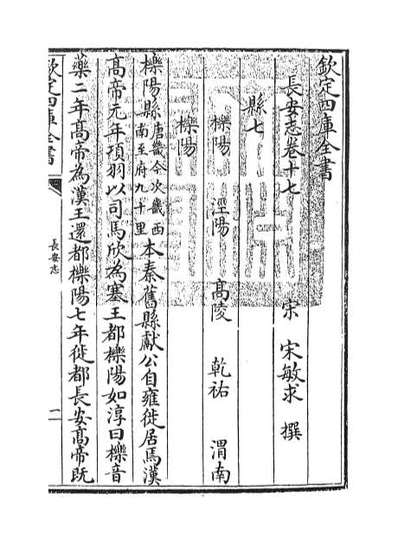 欽定四庫全書
長安志卷十七
宋 宋敏求 撰
縣七
櫟陽 涇陽 髙陵 乾祐 渭南
櫟陽
櫟陽縣唐畿今次畿西南至府九十里本秦舊縣獻公自雍徙居焉漢
髙帝元年項羽以司馬欣為塞王都櫟陽如淳曰櫟音
藥二年髙帝為漢王還都櫟陽七年徙都長安髙帝既
欽定四庫全書
長安志
一